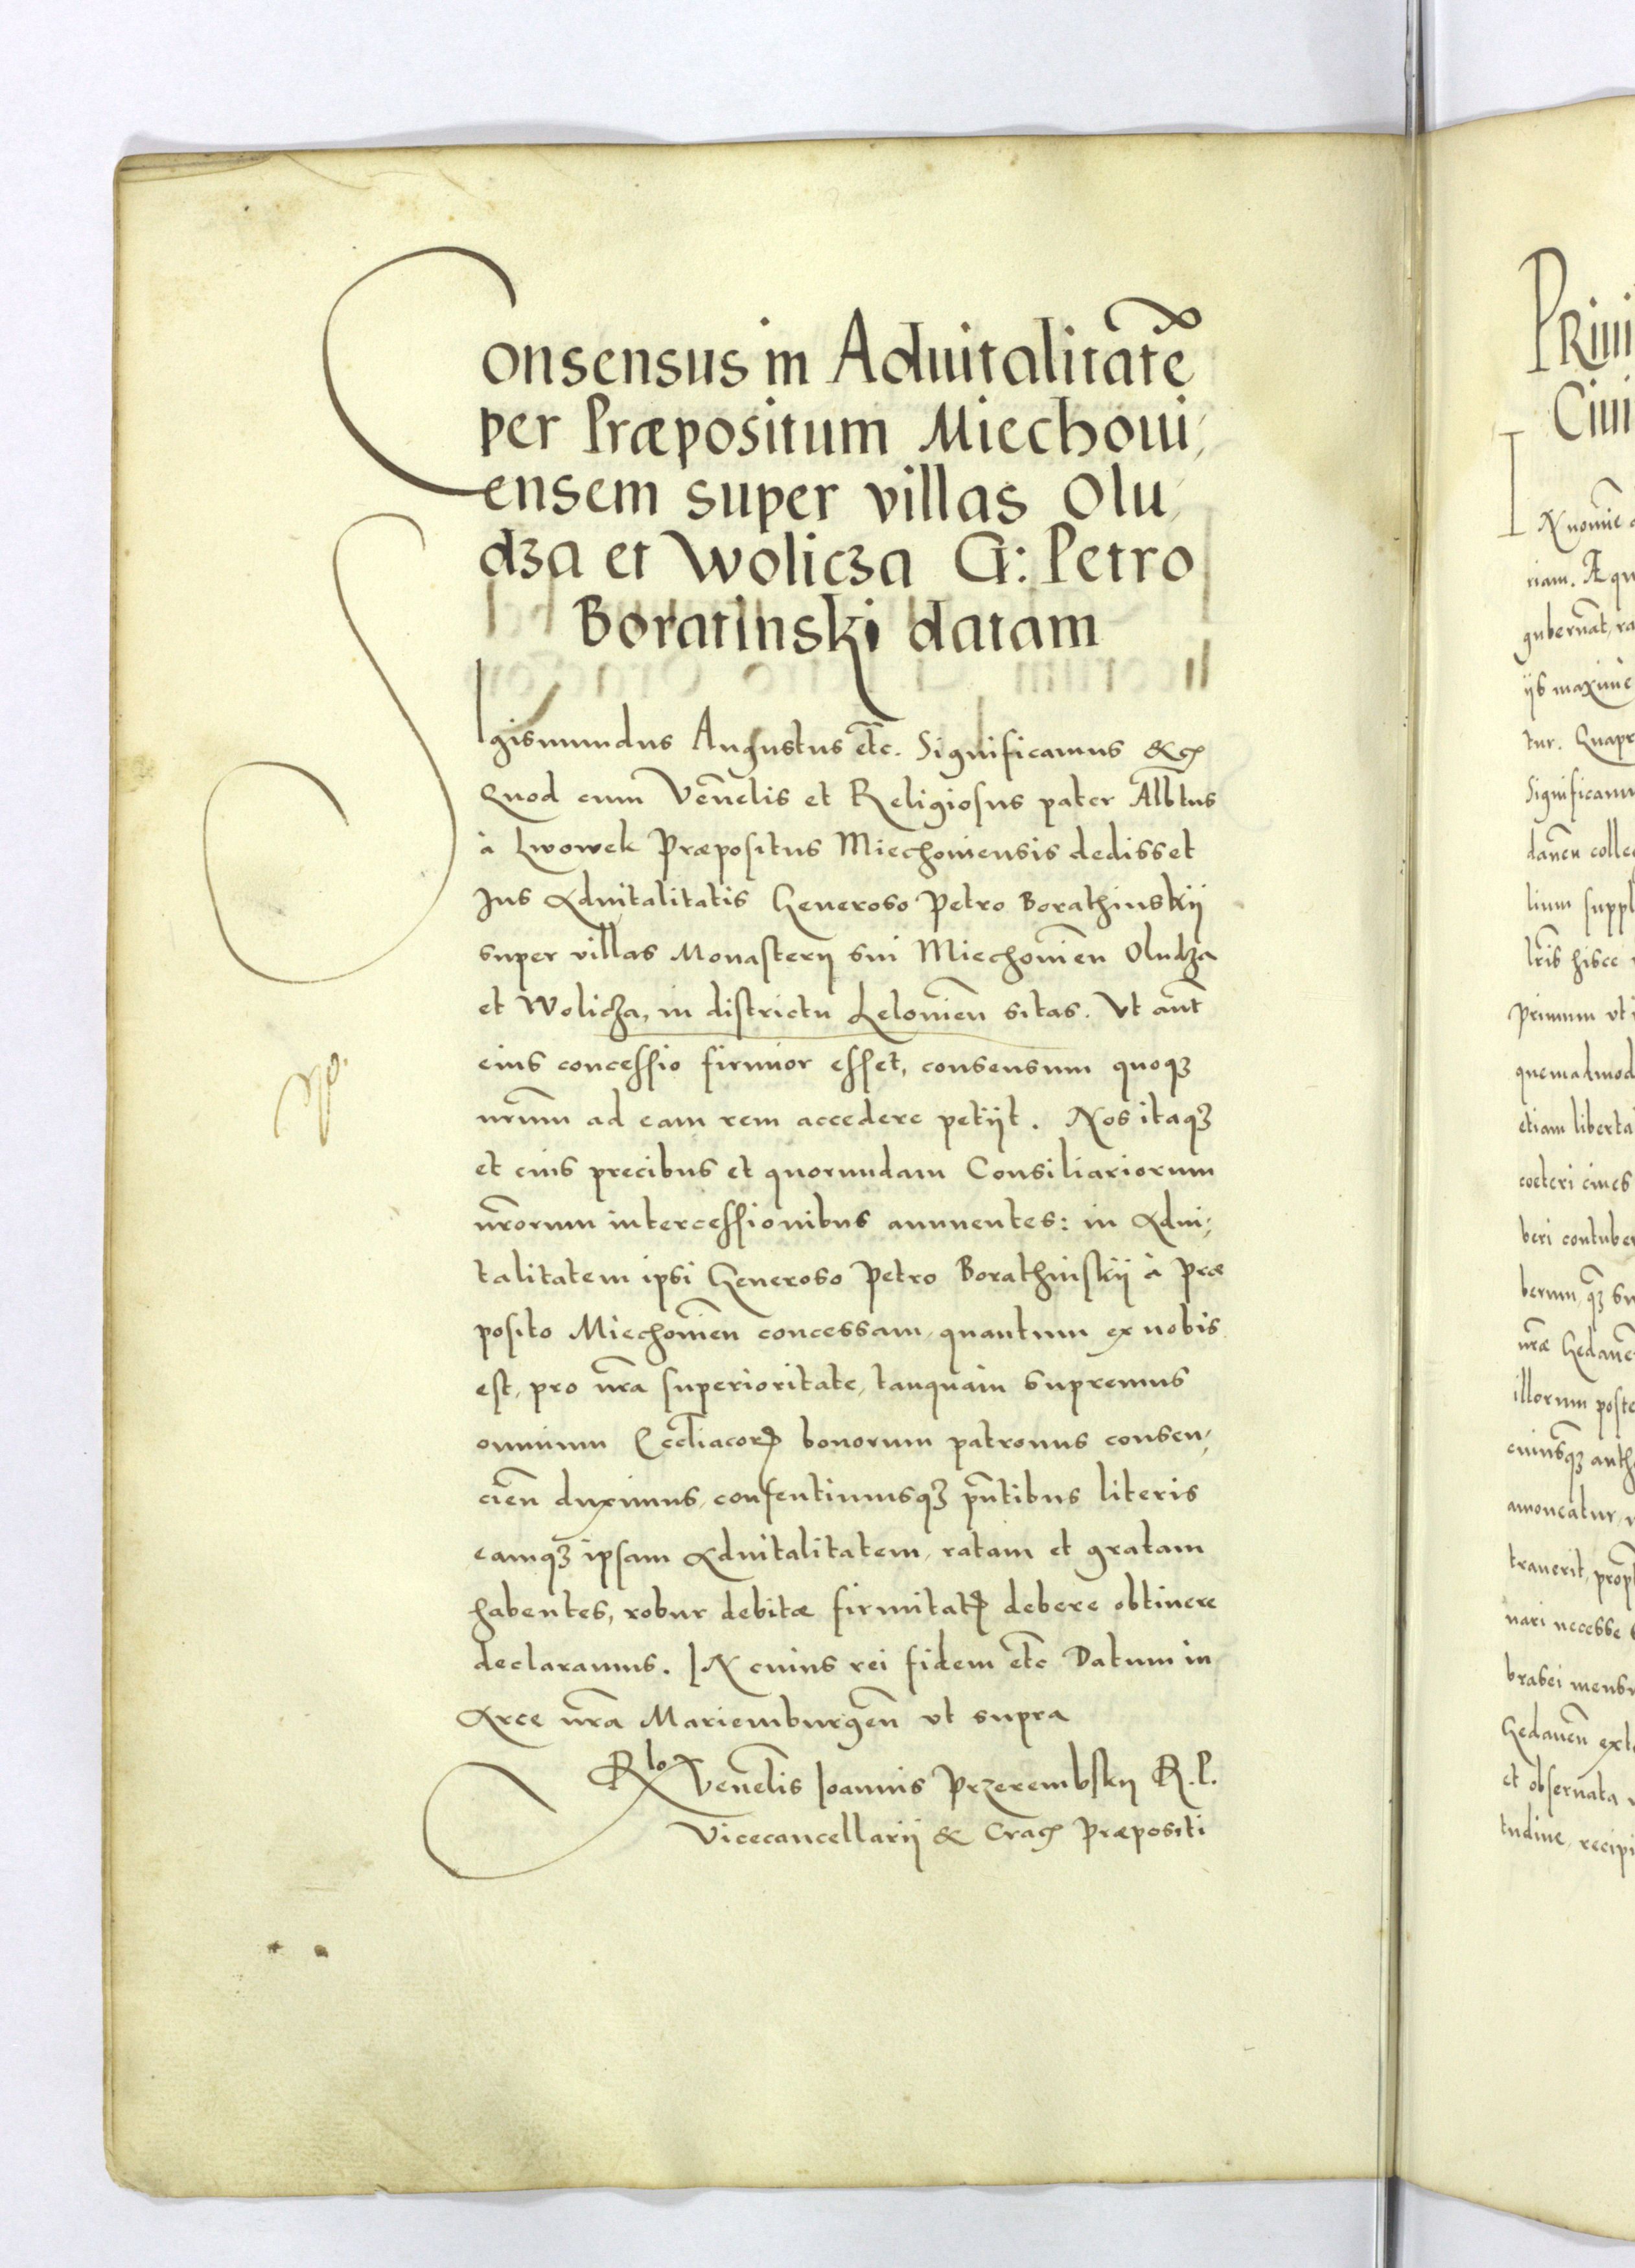 Consensus in Aduitalitatē
per Præpositum Miechoui,
ensem super villas Olu,
dʒa et Wolicʒa G: Petro
Boratinski datam
SIgismundus Augustus etc̄. Significamus &c
Quod cum Venēlis et Religiosus pater Albtus
à Lwowek Præpositus Miechouiensis dedisset
Jus Aduitalitatis Generoso Petro Borathinskij
super villas Monasterij sui Miechouien̄ Oludʒa
et Wolicʒa, in districtu Lelouien̄ sitas. Vt aut̄
eius concessio firmior esset, consensum quoqʒ
nrūm ad eam rem accedere petijt. Nos itaqʒ
et eius precibus et quorundam Consiliariorum
nr̄orum intercessionibus annuentes: in Adui,
talitatem ipsi Generoso Petro Borathinskij à Præ
posito Miechouien̄ concessam, quantum ex nobis
est, pro nr̄a superioritate, tanquam supremus
omnium Eccl̄iacorꝝ bonorum patronus consen,
cien̄ duximus, consentimusqʒ pn̄tibus literis
eamqʒ ipsam Aduitalitatem, ratam et gratam
habentes, robur debitæ firmitatꝭ debere obtinere
declaramus. IN cuius rei fidem etc̄ Datum in
Arce nr̄a Mariemburgen̄ vt supra
Rlo Venel̄is Joannis Przerembskij R. P.
Vicecancellarij & Crac Præpositi
PRiui
Ciui
IN nomīe
riam. Æ qu
gubernāt, ra
ijs maxime
tur. Quapr
Significamu
danen̄ colle
lium suppl
lr̄is hisce
primum vt i
quemadmod
etiam liberta
cœteri ciues
beri contuber
berum, qʒ su
nr̄æ Gedanē
illorum poste
cuiusqʒ auth
amoueatur,
trauerit, prop
nari necesse
brasei mensu
Gedanen̄ exte
et obseruata
tudine, recipi